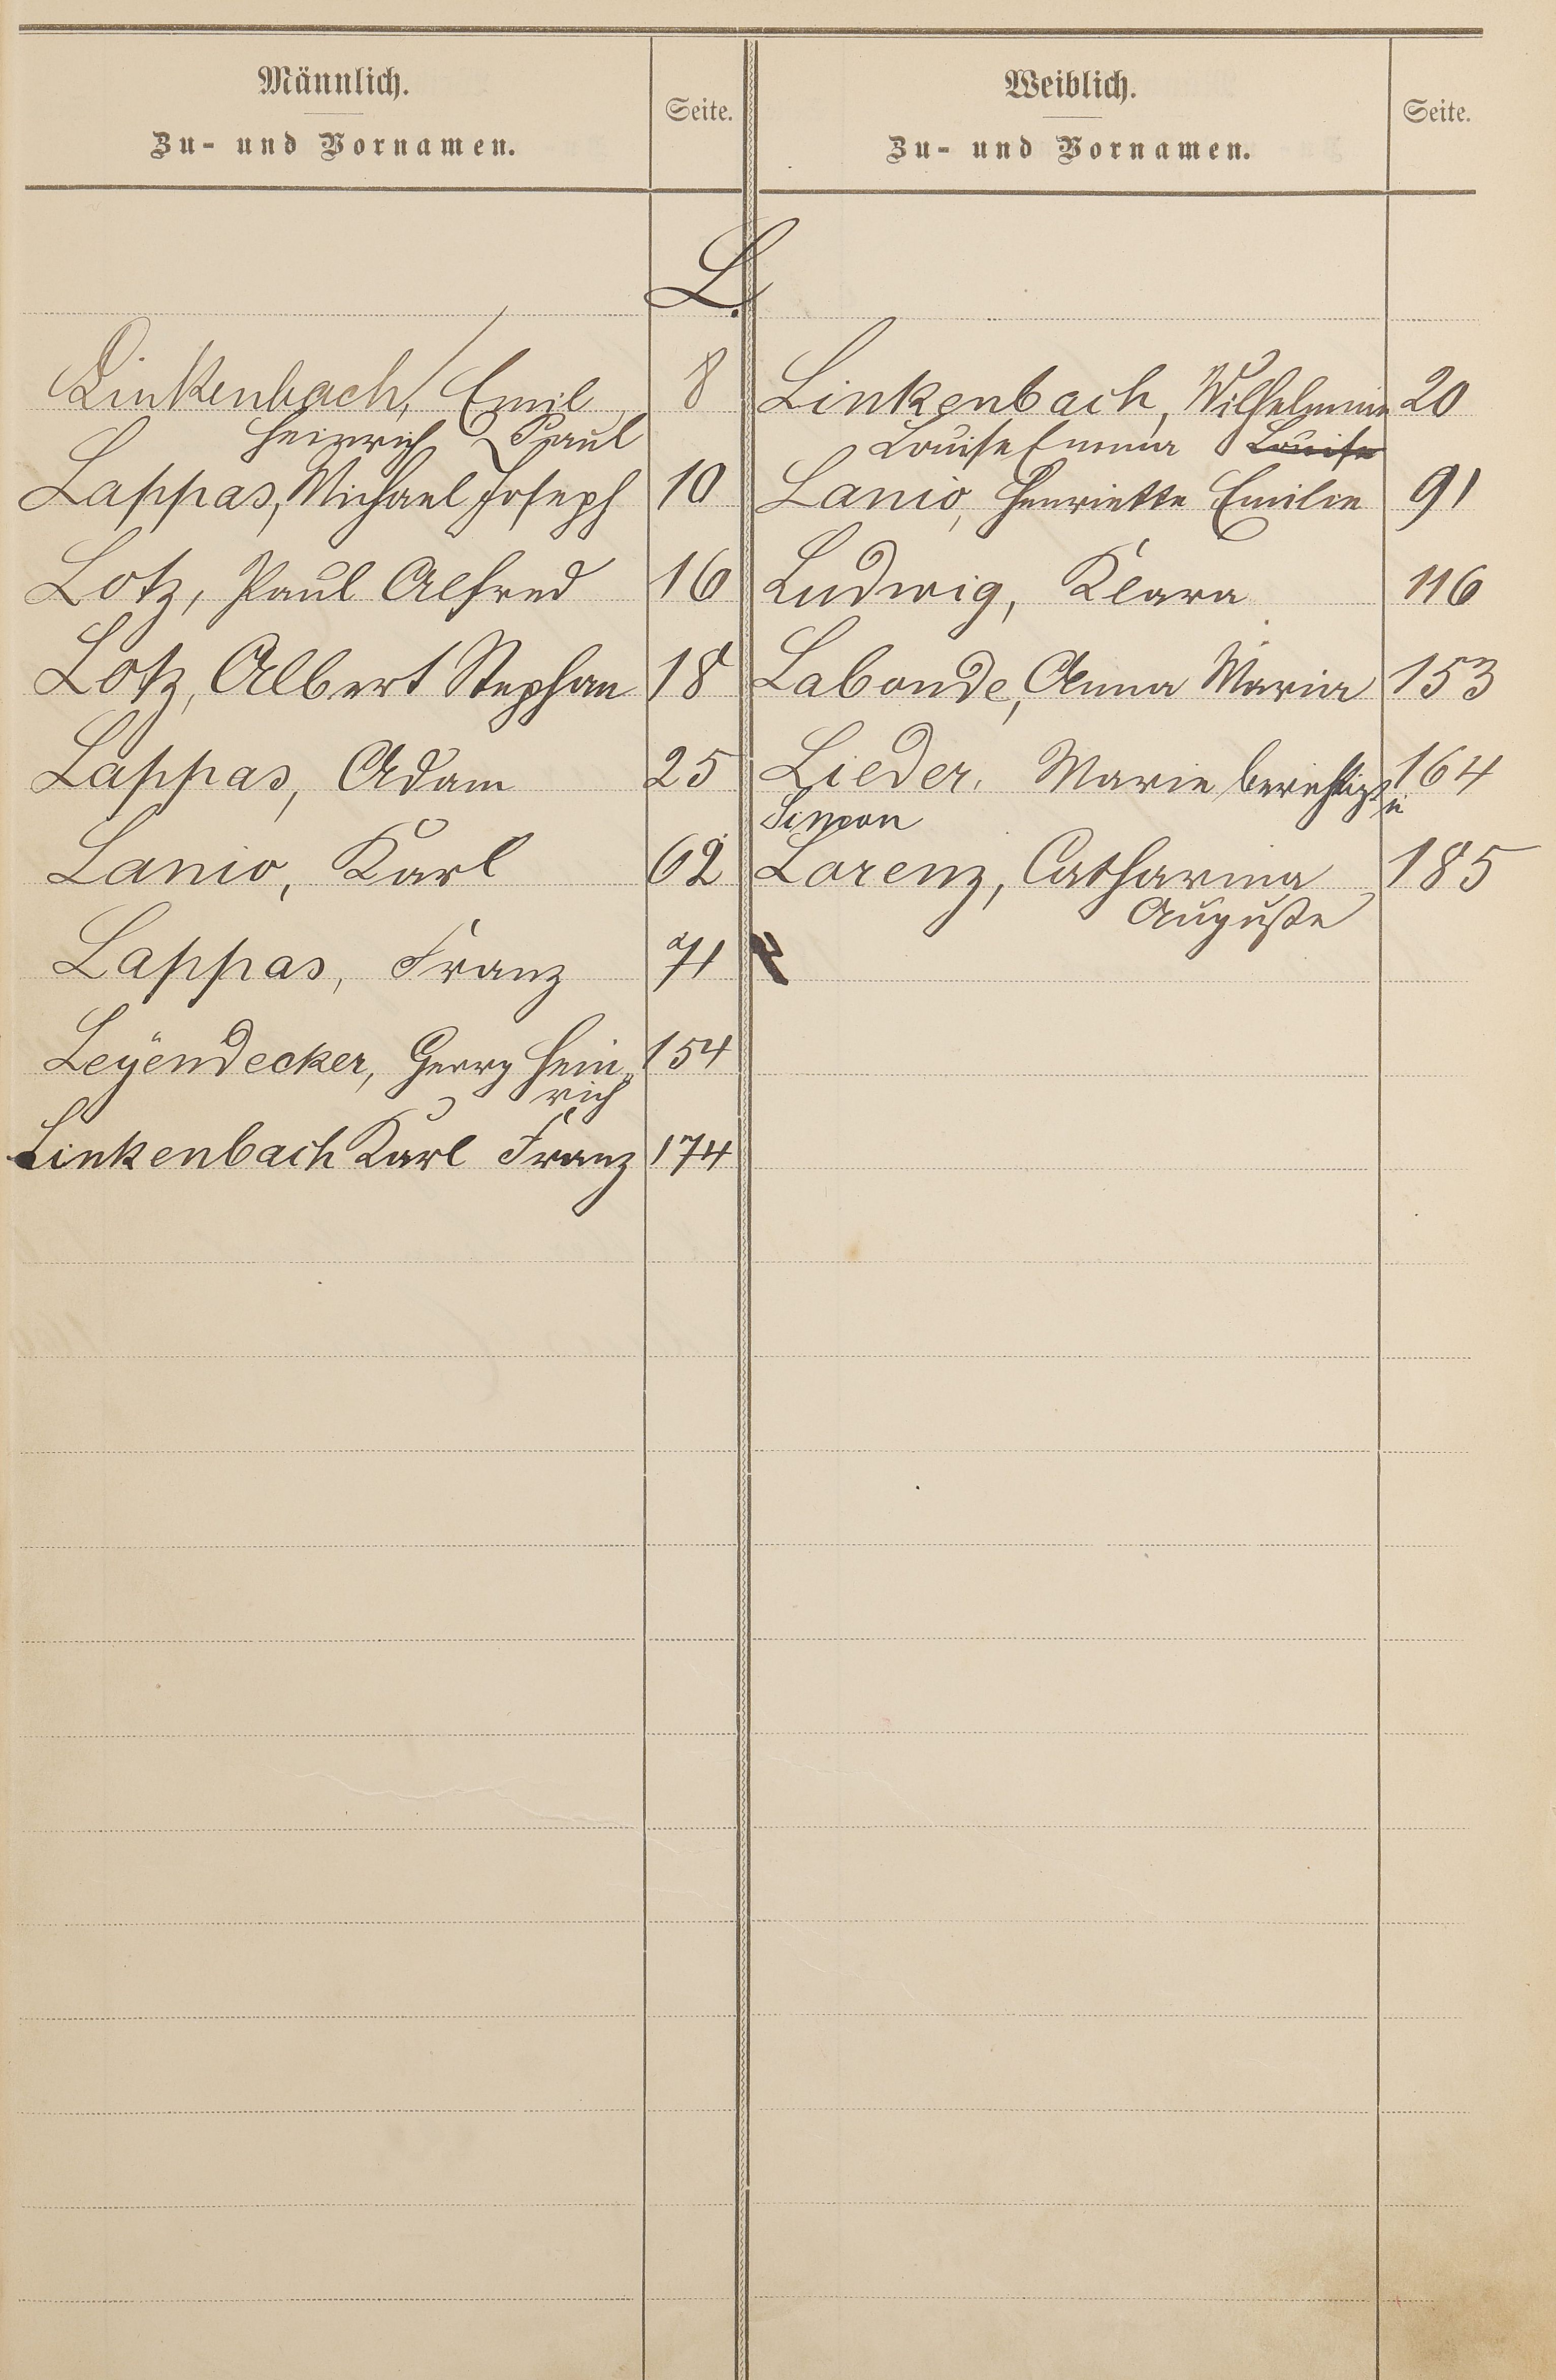 Männlich.
Zu- und Vornamen.
Seite.
Weiblich.
Zu- und Vornamen.
Seite.
L.
Linkenbach, Emil 8
Heinrich Paul
Lappas, Michael Joseph 10
Lotz, Paul Alfred 16
Lotz, Albert Stephan 18
Lappas, Adam 25
Lanio, Karl 62
Lappas, Franz 71
Leÿendecker, Georg Hein 154
rich
Linkenbach Karl Franz 174
Linkenbach, Wilhelmine 20
Louise Emma Louise
Lanio, Henriette Emilie 91
Ludwig, Klara 116
Labonde, Anna Maria 153
Lieder, Marie berichtigt 164
Simon
Lorenz, Catharina 185
Auguste